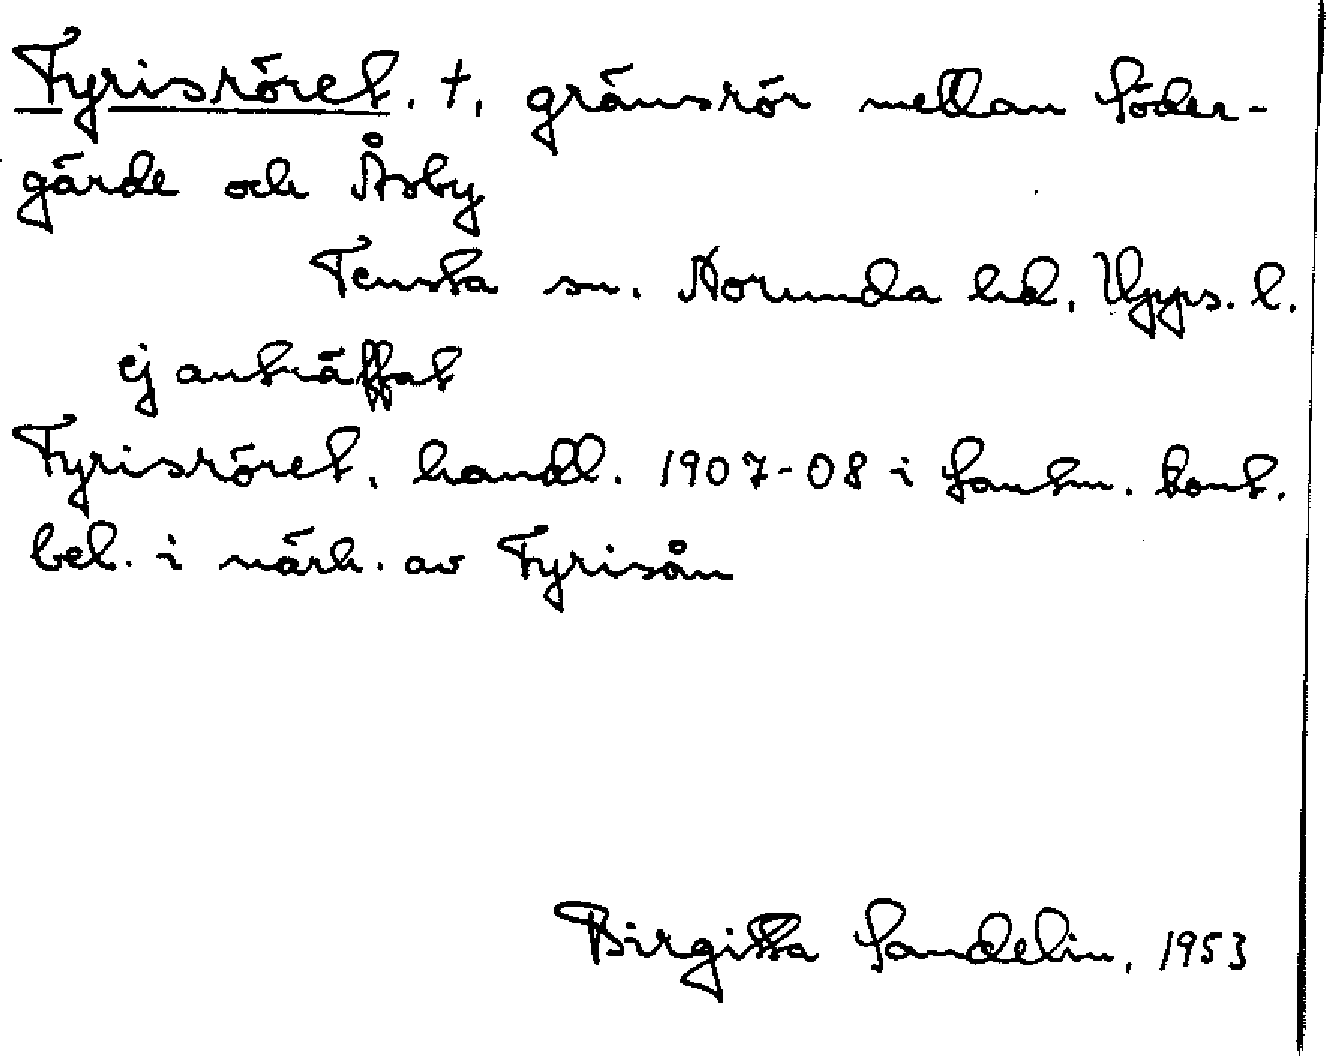 Fyrisröret. †, gränsrör mellan Söder-
gärde och Åsby
Tensta sn. Norunda hd. Upps. l.
ej anträffat
Fyrisröret, handl. 1907-08 i Lantm. kont.
bel. i närh. av Fyrisån
Birgitta Sandelin, 1953